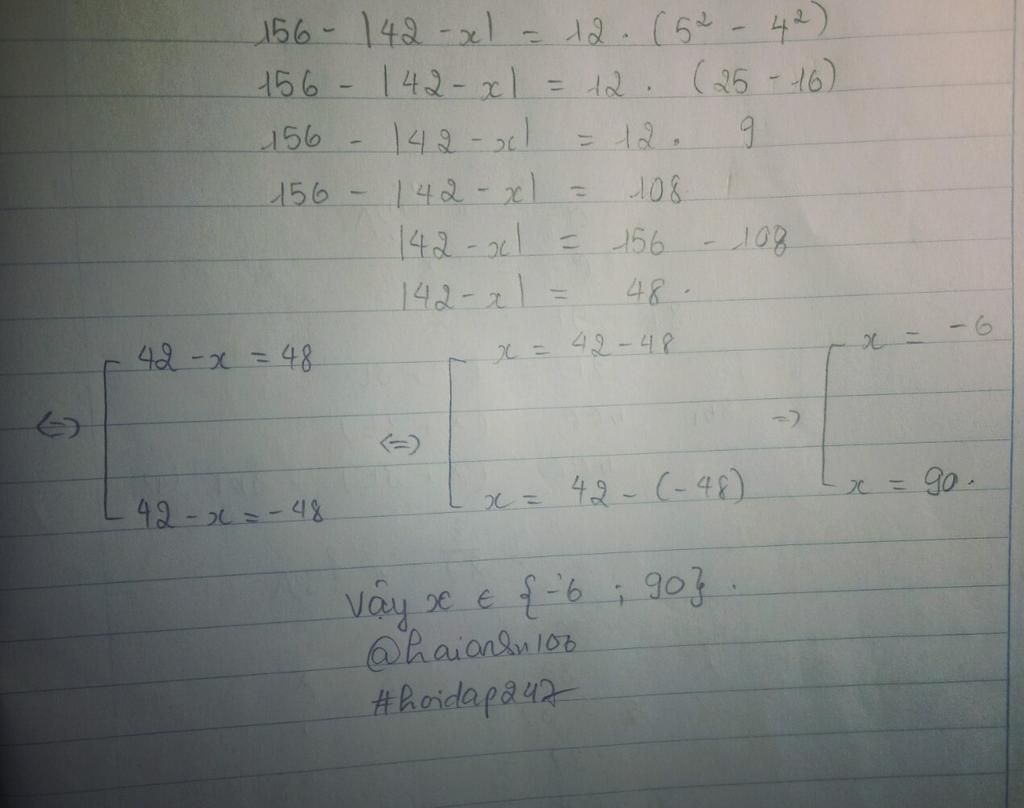 156 - |42 - x| = 12 . (5² - 4²)
156 - |42 - x| = 12 . (25 - 16)
156 - |42 - x| = 12 . 9
156 - |42 - x| = 108
|42 - x| = 156 - 108
|42 - x| = 48 .
<=> [ 42 - x = 48 <=> [ x = 42 - 48 => [ x = -6
42 - x = -48 x = 42 - (-48) x = 90.
Vậy x ∈ {-6 ; 90} .
#hoidap247